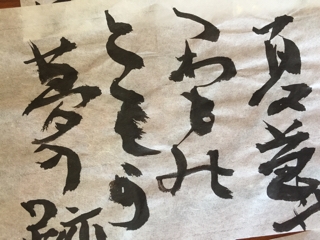 夏草や
つわもの
ともか
夢の跡